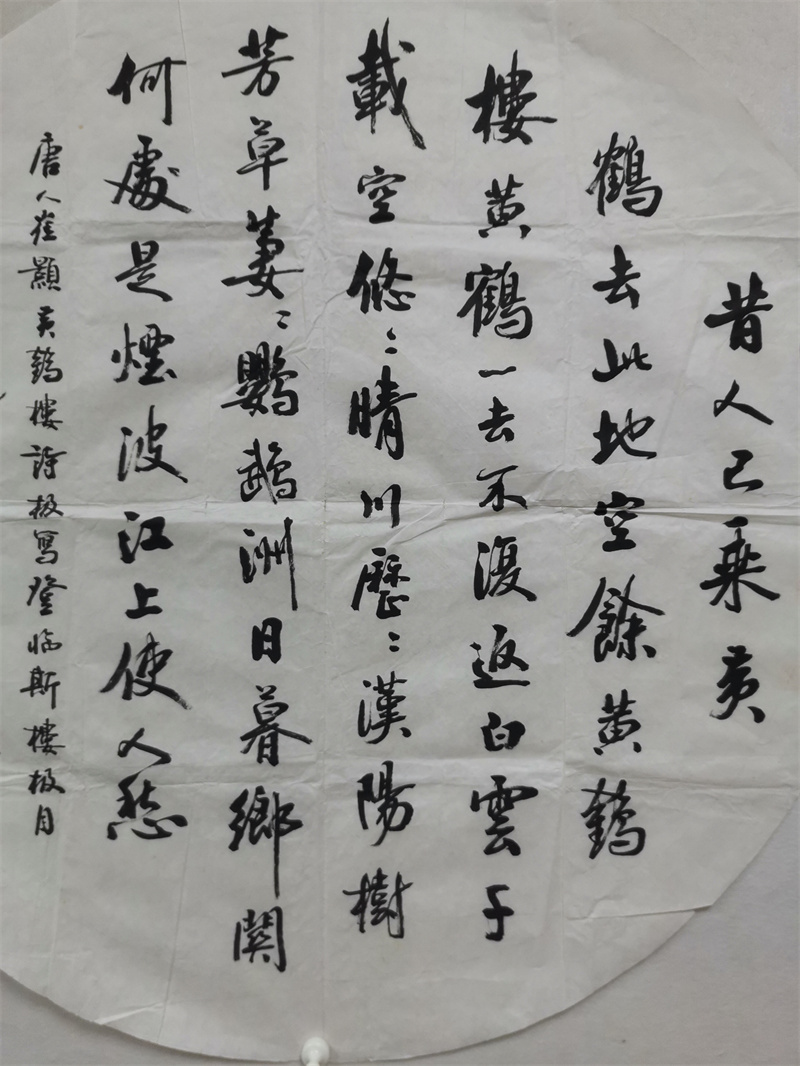 昔人已乘黄
鶴去此地空餘黄鶴
樓黄鶴一去不復返白雲千
載空悠〻晴川歷〻漢陽樹
芳草萋〻鸚鵡洲日暮鄉關
何處是煙波江上使人愁
唐人崔顥黄鶴樓詩極寫登臨斯樓極目